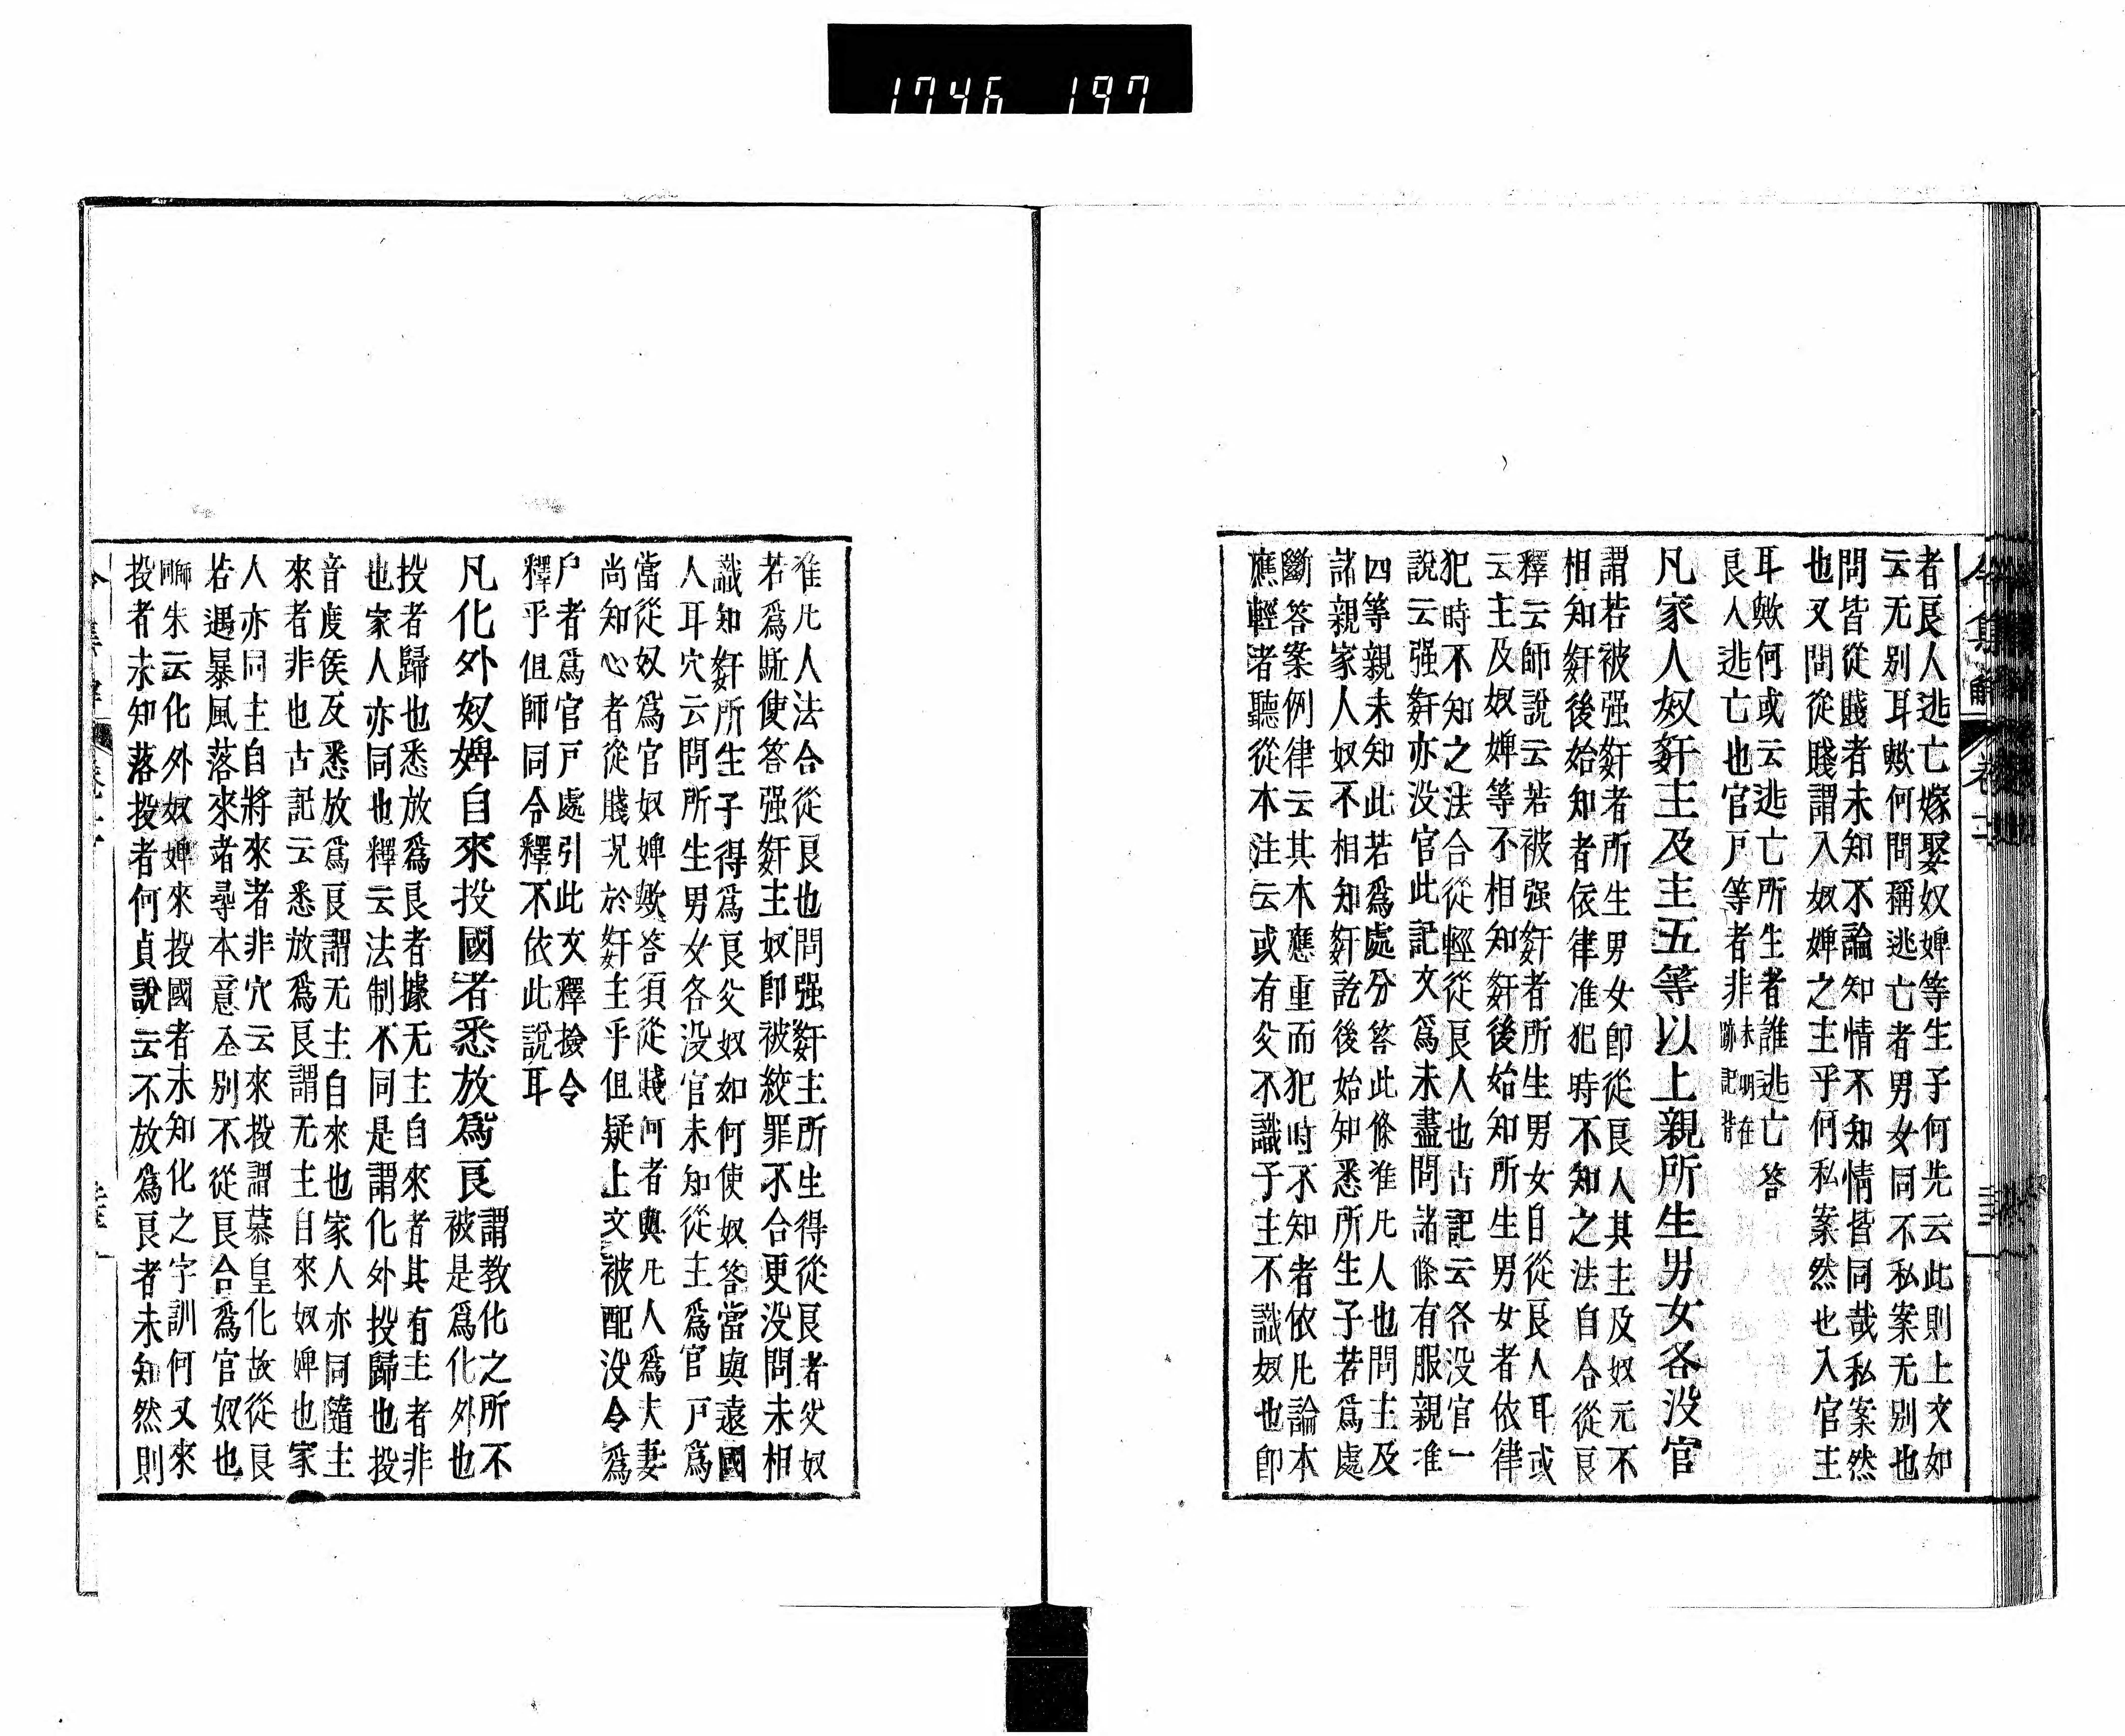 1746 197
令集解 卷十一
者良人逃亡嫁娶奴婢等生子何先云此則上文如
云无别耳歟何問稱逃亡者男女同不私案无别也
問皆從賤者未知不論知情不知情皆同哉私案然
也又問從賤謂入奴婢之主乎何私案然也入官主
耳歟何或云逃亡所生者誰逃亡答
良人逃亡也官戸等者非未明在跡記背
凡家人奴姧主及主五等以上親所生男女各没官
謂若被强姧者所生男女卽從良人其主及奴元不
相知姧後始知者依律准犯時不知之法自合從良
釋云師說云若被强姧者所生男女自從良人耳或
云主及奴婢等不相知姧後始知所生男女者依律
犯時不知之法合從輕從良人也古記云各没官一
說云强姧亦没官此記文爲未盡問諸條有服親准
四等親未知此若爲處分答此條准凡人也問主及
諸親家人奴不相知姧訖後始知悉所生子若爲處
斷答案例律云其本應重而犯時不知者依凡論本
應輕者聽從本注云或有父不識子主不識奴也卽
准凡人法合從良也問强姧主所生得從良者父奴
若爲駈使答强姧主奴卽被絞罪不合更没問未相
識知姧所生子得爲良父奴如何使奴答當與遠國
人耳穴云問所生男女各没官未知從主爲官戸爲
當從奴爲官奴婢歟答須從賤何者與凡人爲夫妻
尚知心者從賤况於姧主乎但疑上文被配没令爲
戸者爲官戸處引此文釋撿令
釋乎但師同令釋不依此說耳
凡化外奴婢自來投國者悉放爲良謂教化之所不
被是爲化外也
投者歸也悉放爲良者據无主自來者其有主者非
也家人亦同也釋云法制不同是謂化外投歸也投
音度侯反悉放爲良謂无主自來也家人亦同隨主
來者非也古記云悉放爲良謂无主自來奴婢也家
人亦同主自將來者非穴云來投謂慕皇化故從良
若遇暴風落來者尋本意全别不從良合爲官奴也
師同朱云化外奴婢來投國者未知化之字訓何又來
投者未知落投者何貞說云不放爲良者未知然則